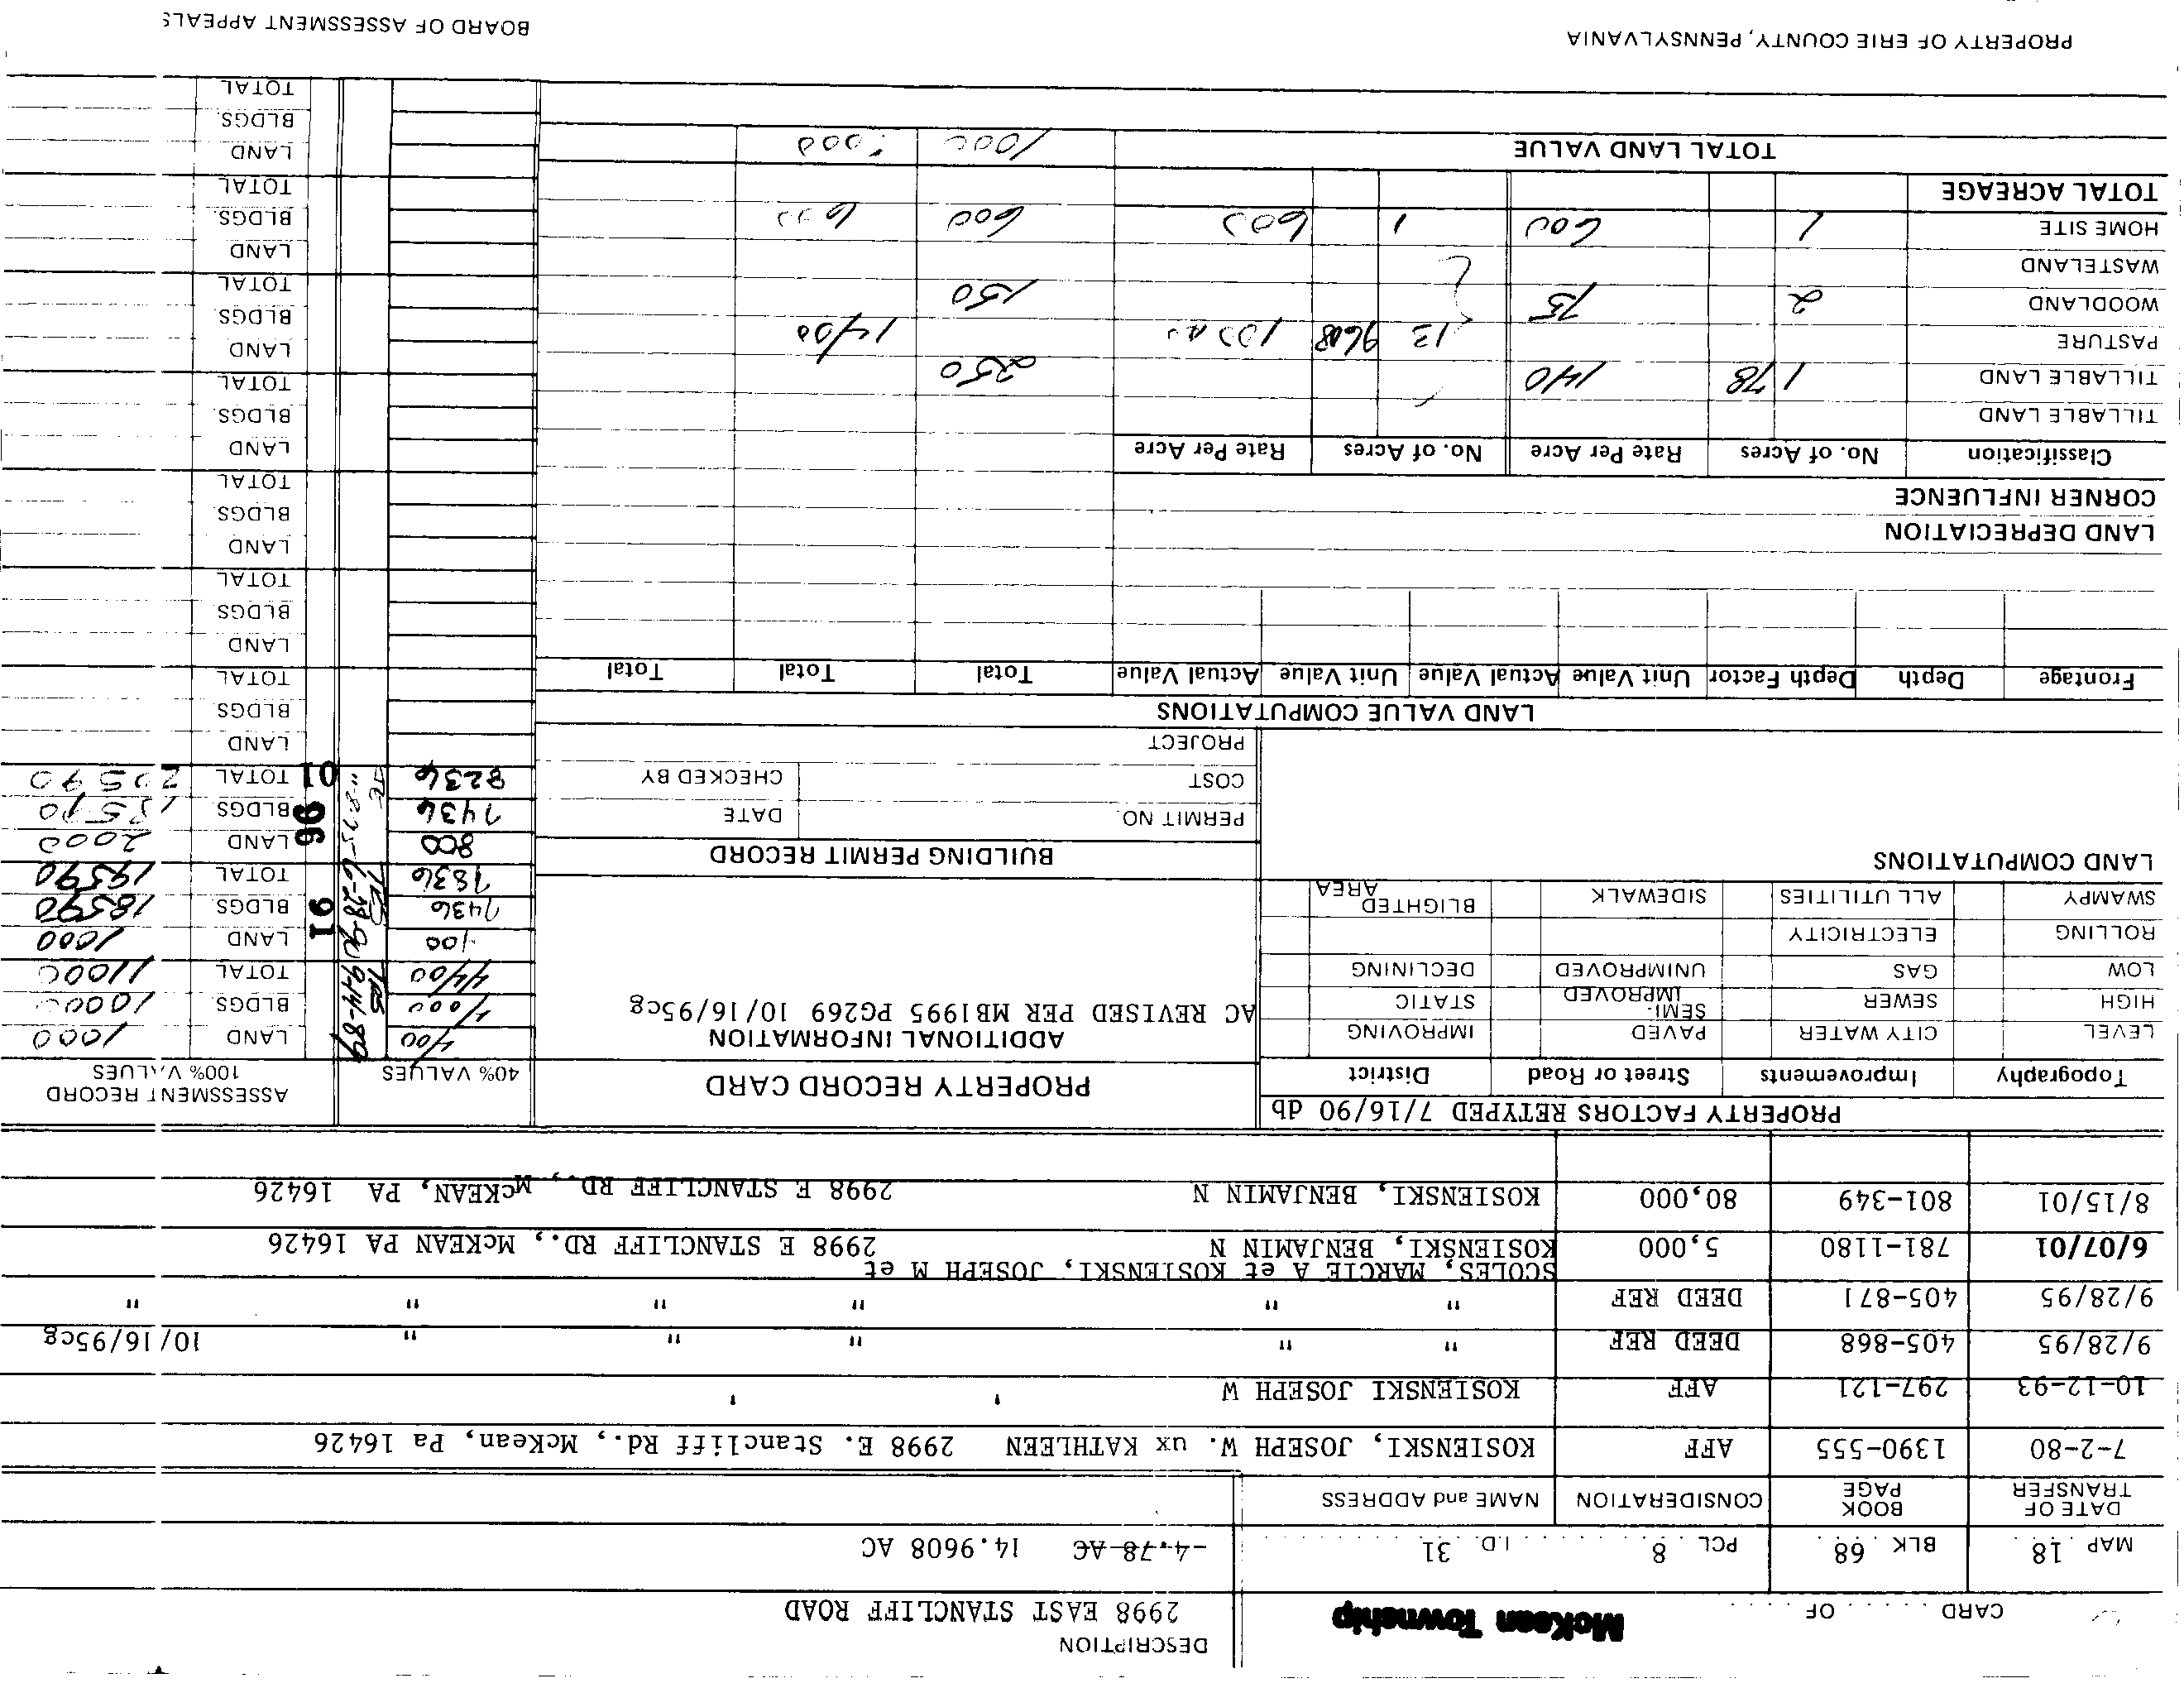 DESCRIPTION
CARD . . . . . OF . . . . . McKean Township 2998 EAST STANCLIFF ROAD
MAP 18 BLK 68 PCL 8 I.D. 31 4.78 AC 14.9608 AC
DATE OF TRANSFER BOOK PAGE CONSIDERATION NAME and ADDRESS
7-2-80 1390-555 AFF KOSIENSKI, JOSEPH W. ux KATHLEEN 2998 E. Stancliff Rd., McKean, Pa 16426
10-12-93 297-121 AFF KOSIENSKI JOSEPH W ' '
9/28/95 405-868 DEED REF " " " " " 10/16/95cg
9/28/95 405-871 DEED REF " " " " " "
SCOLES, MARCIE A et KOSIENSKI, JOSEPH M et
6/07/01 781-1180 5,000 KOSIENSKI, BENJAMIN N 2998 E STANCLIFF RD., McKEAN PA 16426
8/15/01 801-349 80,000 KOSIENSKI, BENJAMIN N 2998 E STANCLIFF RD., McKEAN, PA 16426
PROPERTY FACTORS RETYPED 7/16/90 db
Topography Improvements Street or Road District
LEVEL CITY WATER PAVED IMPROVING
HIGH SEWER SEMI-IMPROVED STATIC
LOW GAS UNIMPROVED DECLINING
ROLLING ELECTRICITY
SWAMPY ALL UTILITIES SIDEWALK BLIGHTED AREA
LAND COMPUTATIONS
PROPERTY RECORD CARD
ADDITIONAL INFORMATION
AC REVISED PER MB1995 PG269 10/16/95cg
BUILDING PERMIT RECORD
PERMIT NO. DATE
COST CHECKED BY
PROJECT
40% VALUES ASSESSMENT RECORD 100% VALUES
400 LAND 1000
BLDGS. 10000
4400 TRS 9-14-89 TOTAL 11000
400 LAND 1000
7436 91 BLDGS 18590
7836 TRS 6-28-90 TOTAL 19590
800 LAND 2000
7436 96 BLDGS 18590
8236 01 TOTAL 20590
LAND
BLDGS
TOTAL
LAND
BLDGS.
TOTAL
LAND
BLDGS
TOTAL
LAND
BLDGS.
TOTAL
LAND
BLDGS
TOTAL
LAND
BLDGS.
TOTAL
LAND
BLDGS.
TOTAL
LAND VALUE COMPUTATIONS
Frontage Depth Depth Factor Unit Value Actual Value Unit Value Actual Value Total Total Total
LAND DEPRECIATION
CORNER INFLUENCE
Classification No. of Acres Rate Per Acre No. of Acres Rate Per Acre
TILLABLE LAND
TILLABLE LAND 1 78 140 250
PASTURE 13 9608 1400
WOODLAND 2 75 150
WASTELAND
HOME SITE 1 600 1 600 600 600
TOTAL ACREAGE
TOTAL LAND VALUE 1000
PROPERTY OF ERIE COUNTY, PENNSYLVANIA BOARD OF ASSESSMENT APPEALS